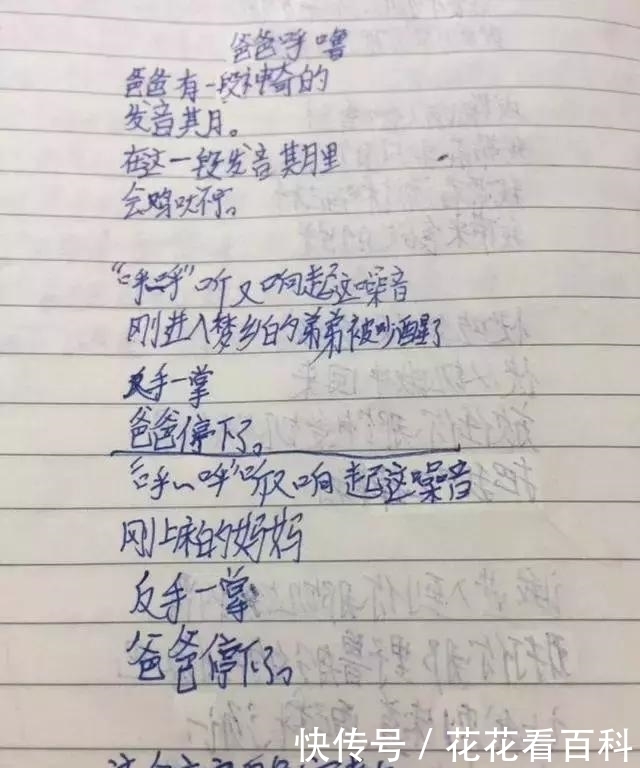 爸爸呼噜
爸爸有一段神奇的
发音其月。
在这一段发音其月里
会鸣吠。
"呼呼"听又响起这噪音
刚进入梦乡的弟弟被吵醒了
反手一掌
爸爸停下了。
"呼~呼"听又响起这噪音
刚上床的妈妈
反手一掌
爸爸停下了。
快传号 / 花花看百科